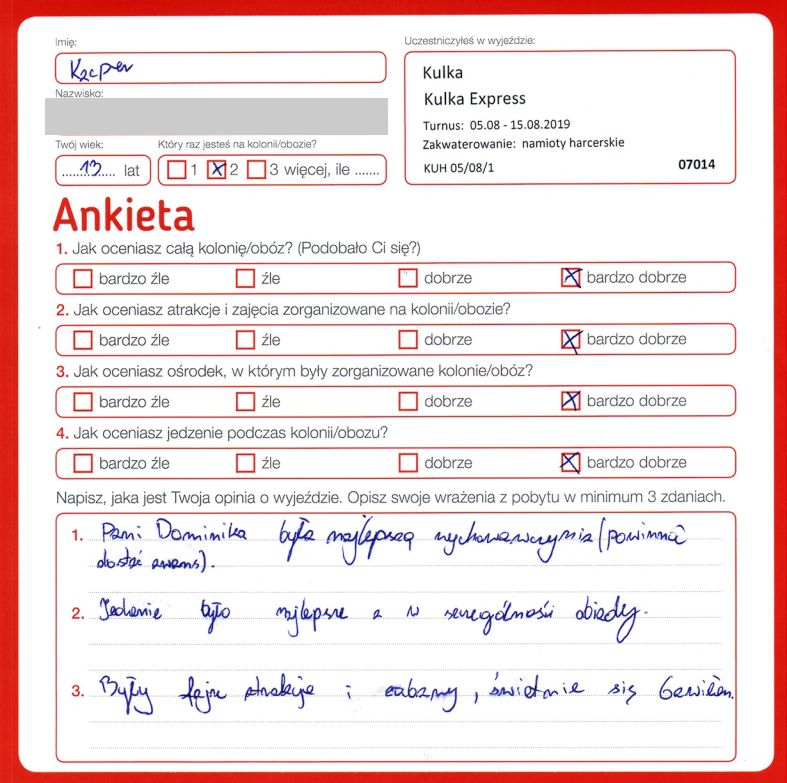 Imię:
Kacper
Nazwisko:
Twój wiek:
13 lat
Który raz jesteś na kolonii/obozie?
1 x 2 3 więcej, ile .......
Uczestniczyłeś w wyjeździe:
Kulka
Kulka Express
Turnus: 05.08 - 15.08.2019
Zakwaterowanie: namioty harcerskie
KUH 05/08/1 07014
Ankieta
1. Jak oceniasz całą kolonię/obóz? (Podobało Ci się?)
bardzo źle źle dobrze x bardzo dobrze
2. Jak oceniasz atrakcje i zajęcia zorganizowane na kolonii/obozie?
bardzo źle źle dobrze x bardzo dobrze
3. Jak oceniasz ośrodek, w którym były zorganizowane kolonie/obóz?
bardzo źle źle dobrze x bardzo dobrze
4. Jak oceniasz jedzenie podczas kolonii/obozu?
bardzo źle źle dobrze x bardzo dobrze
Napisz, jaka jest Twoja opinia o wyjeździe. Opisz swoje wrażenia z pobytu w minimum 3 zdaniach.
1. Pani Dominika była najlepszą wychowawczynią (powinna
dostać awans).
2. Jedzenie było najlepsze a w szczególności obiady.
3. Były fajne atrakcje i zabawy, świetnie się bawiłem.